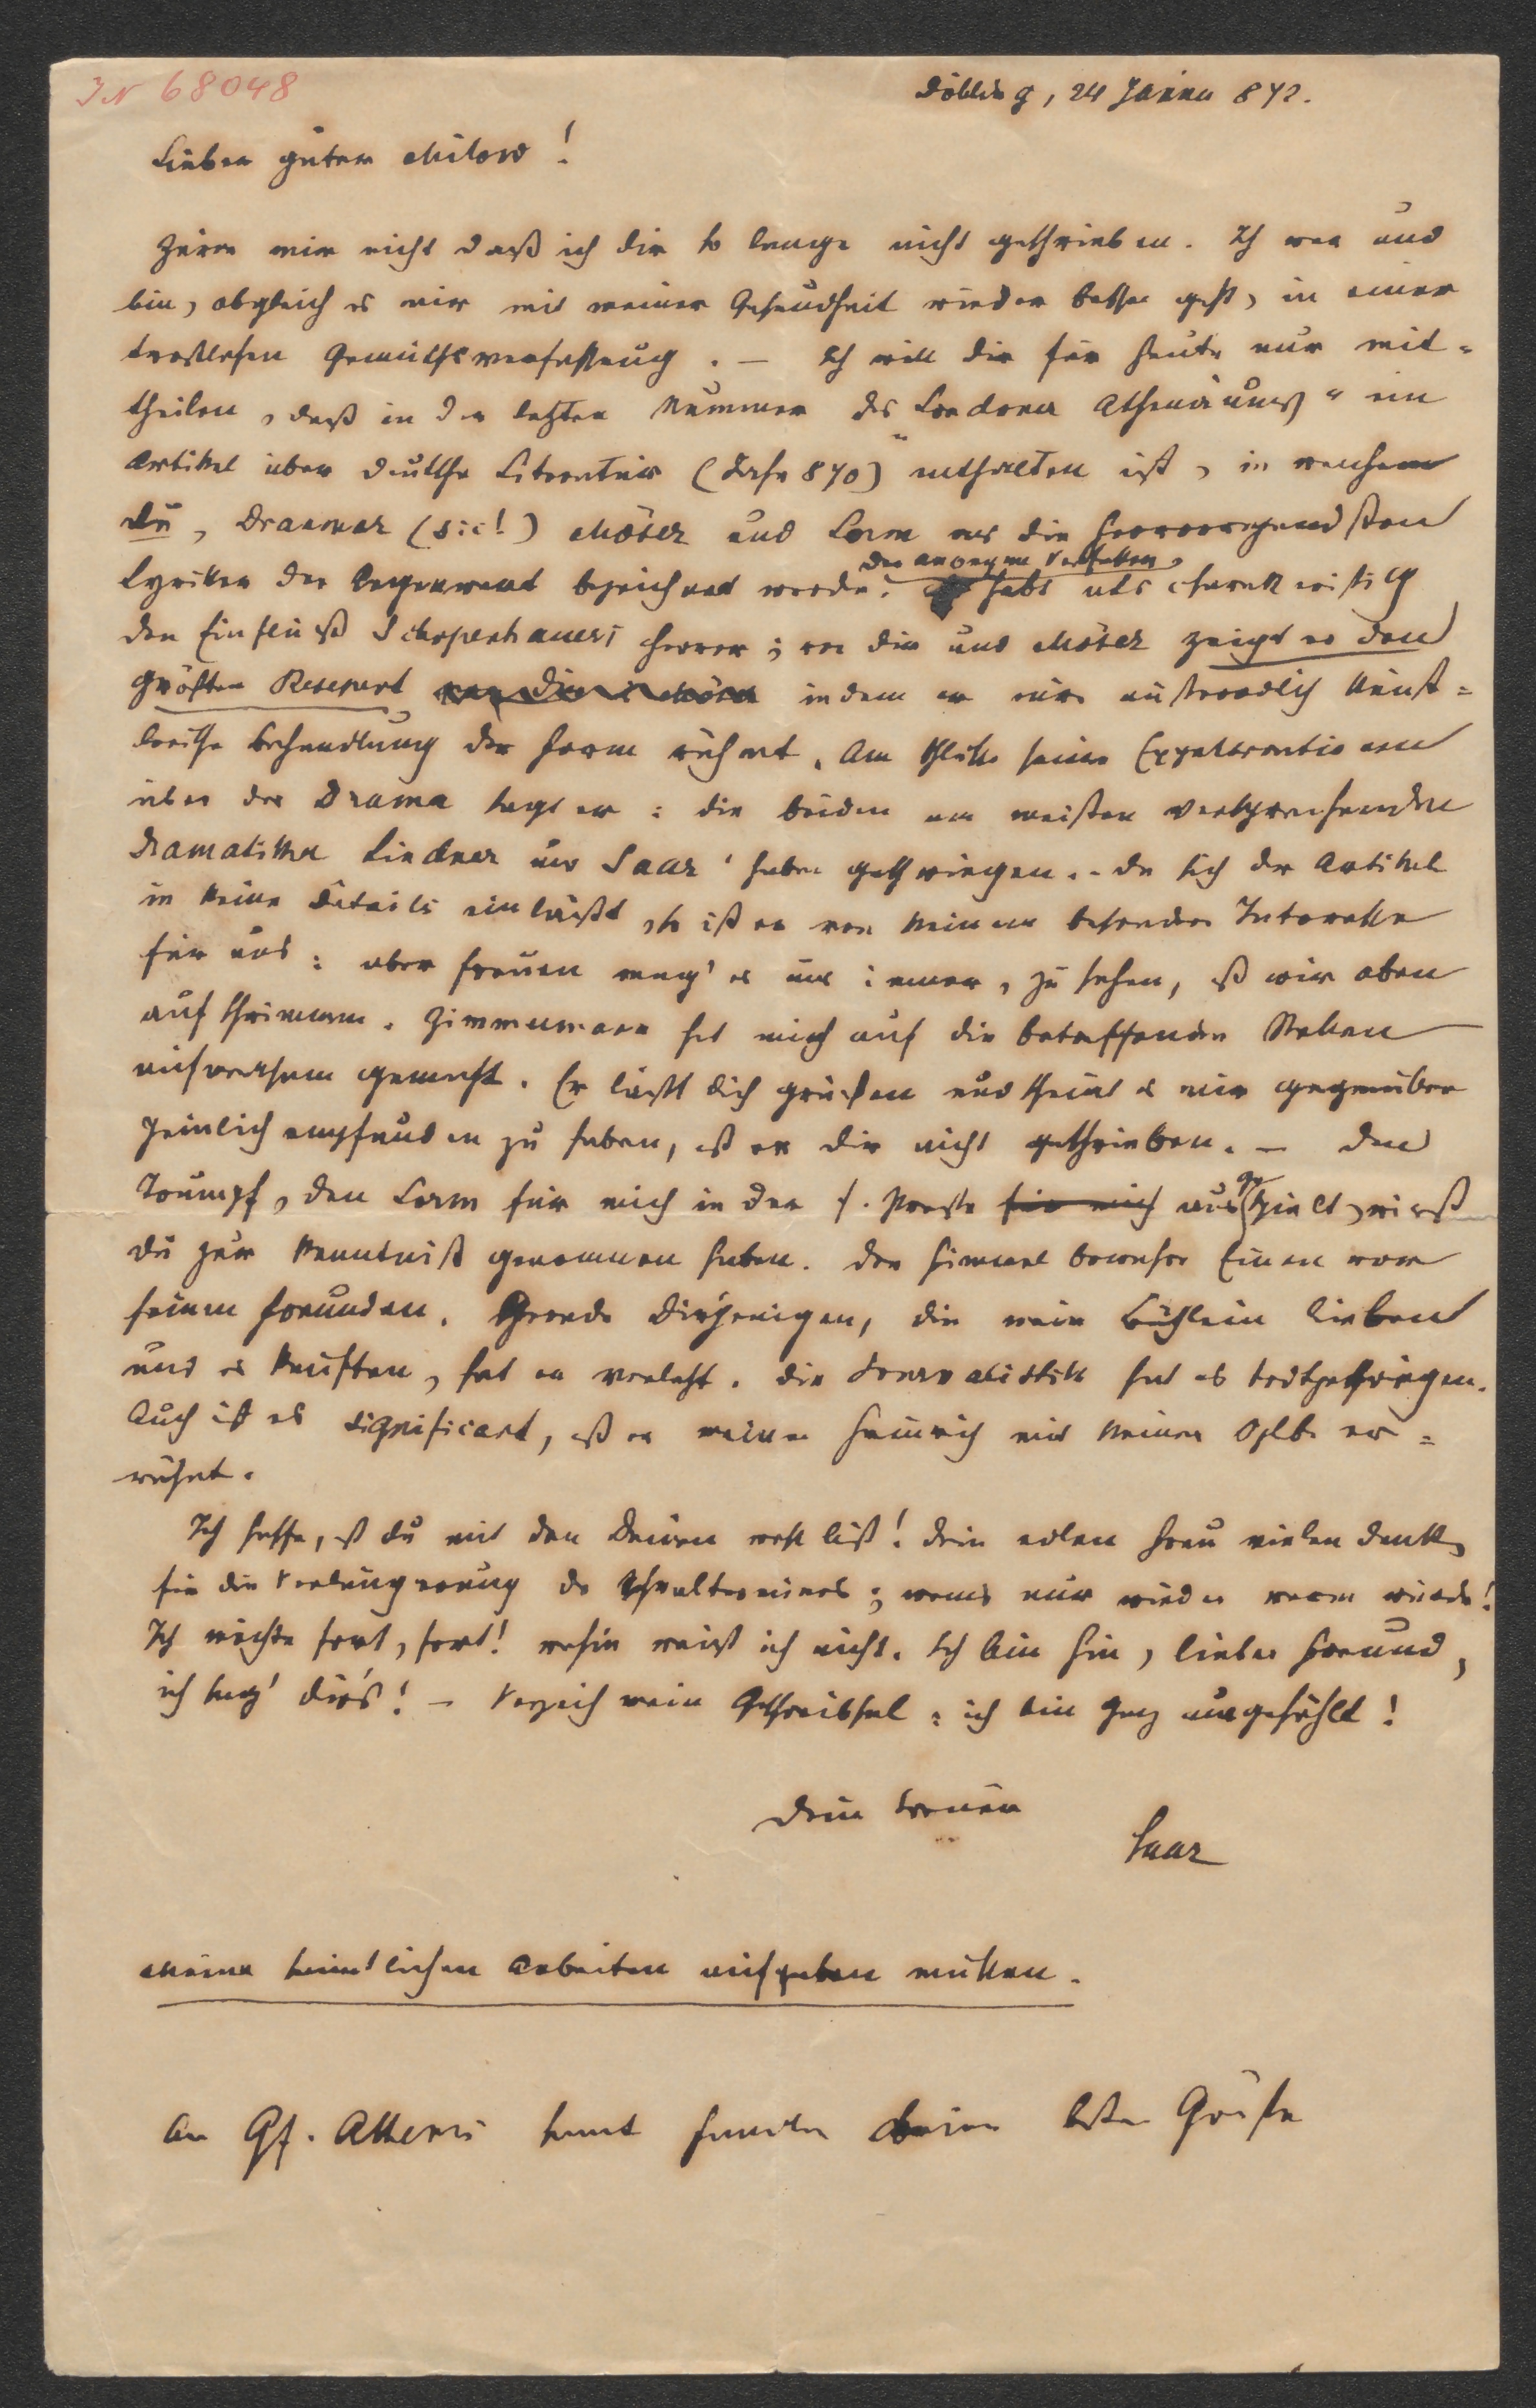 IN 68048
Döbling, 24 Jänner 872.
Lieber guter Milow!
Zürne mir nicht daß ich dir so lange nicht geschrieben. Ich war und
bin, obgleich es mir mit meiner Gesundheit wieder besser geht, in einer
trostlosen Gemüthsverfassung. – Ich will dir für heute nur mit-
theilen, daß in der letzten Nummer des „Londoner Athenäums“ ein
Artikel über deutsche Literatur (Jahr 870) enthalten ist, in welchem
du, Dranmor (sic!) Möser und Lorm als die hervorragendsten
Lyriker der Gegenwart bezeichnet werden.
der anonyme Verfasser,
hebt als charakteristisch
den Einfluß Schopenhauers hervor; vor dir und Möser zeigt er den
größten Respect indem er eure außerordentlich künst-
lerische Behandlung der Form rühmt. Am Schluße seiner Expectorationen
über das Drama sagt er: die beiden am meisten versprechenden
Dramatiker Lindner und Saar haben geschwiegen. – da sich der Artikel
in keine Details einläßt, so ist er von keinem besonderen Interesse
für uns: aber freuen mag's uns immer, zu sehen, daß wir oben
auf schwimmen. Zimmermann hat mich auf die betreffenden Stellen
aufmerksam gemacht. Er läßt dich grüßen und scheint es mir gegenüber
peinlich empfunden zu haben, daß er dir nicht geschrieben. – den
Trumpf, den Lorm für mich in der f. Presse für mich ausgespielt, wirst
du zur Kenntniß genommen haben. der Himmel bewahre Einen vor
seinen Freunden. Gerade diejenigen, die mein Büchlein lieben
und es kauften, hat er verletzt. die Journalistik hat es todtgeschwiegen.
Auch ist es significant, daß er meinen Heinrich mit keiner Sylbe er-
wähnt.
Ich hoffe, daß du mit den Deinen wohl bist! dein edlen Frau vielen dank
für die Verlängerung des termines; wenns nur wieder warm würde!
Ich möchte fort, fort! wohin weiß ich nicht. Ich bin hin, lieber Freund,
ich sag' dir's! – Verzeih mein Geschreibsel: ich bin ganz ausgehöhlt!
Dein treuer
Saar
Meine sämmtlichen Arbeiten aufgeben müssen.
An Gf. Attems sammt Familie meine besten Grüße